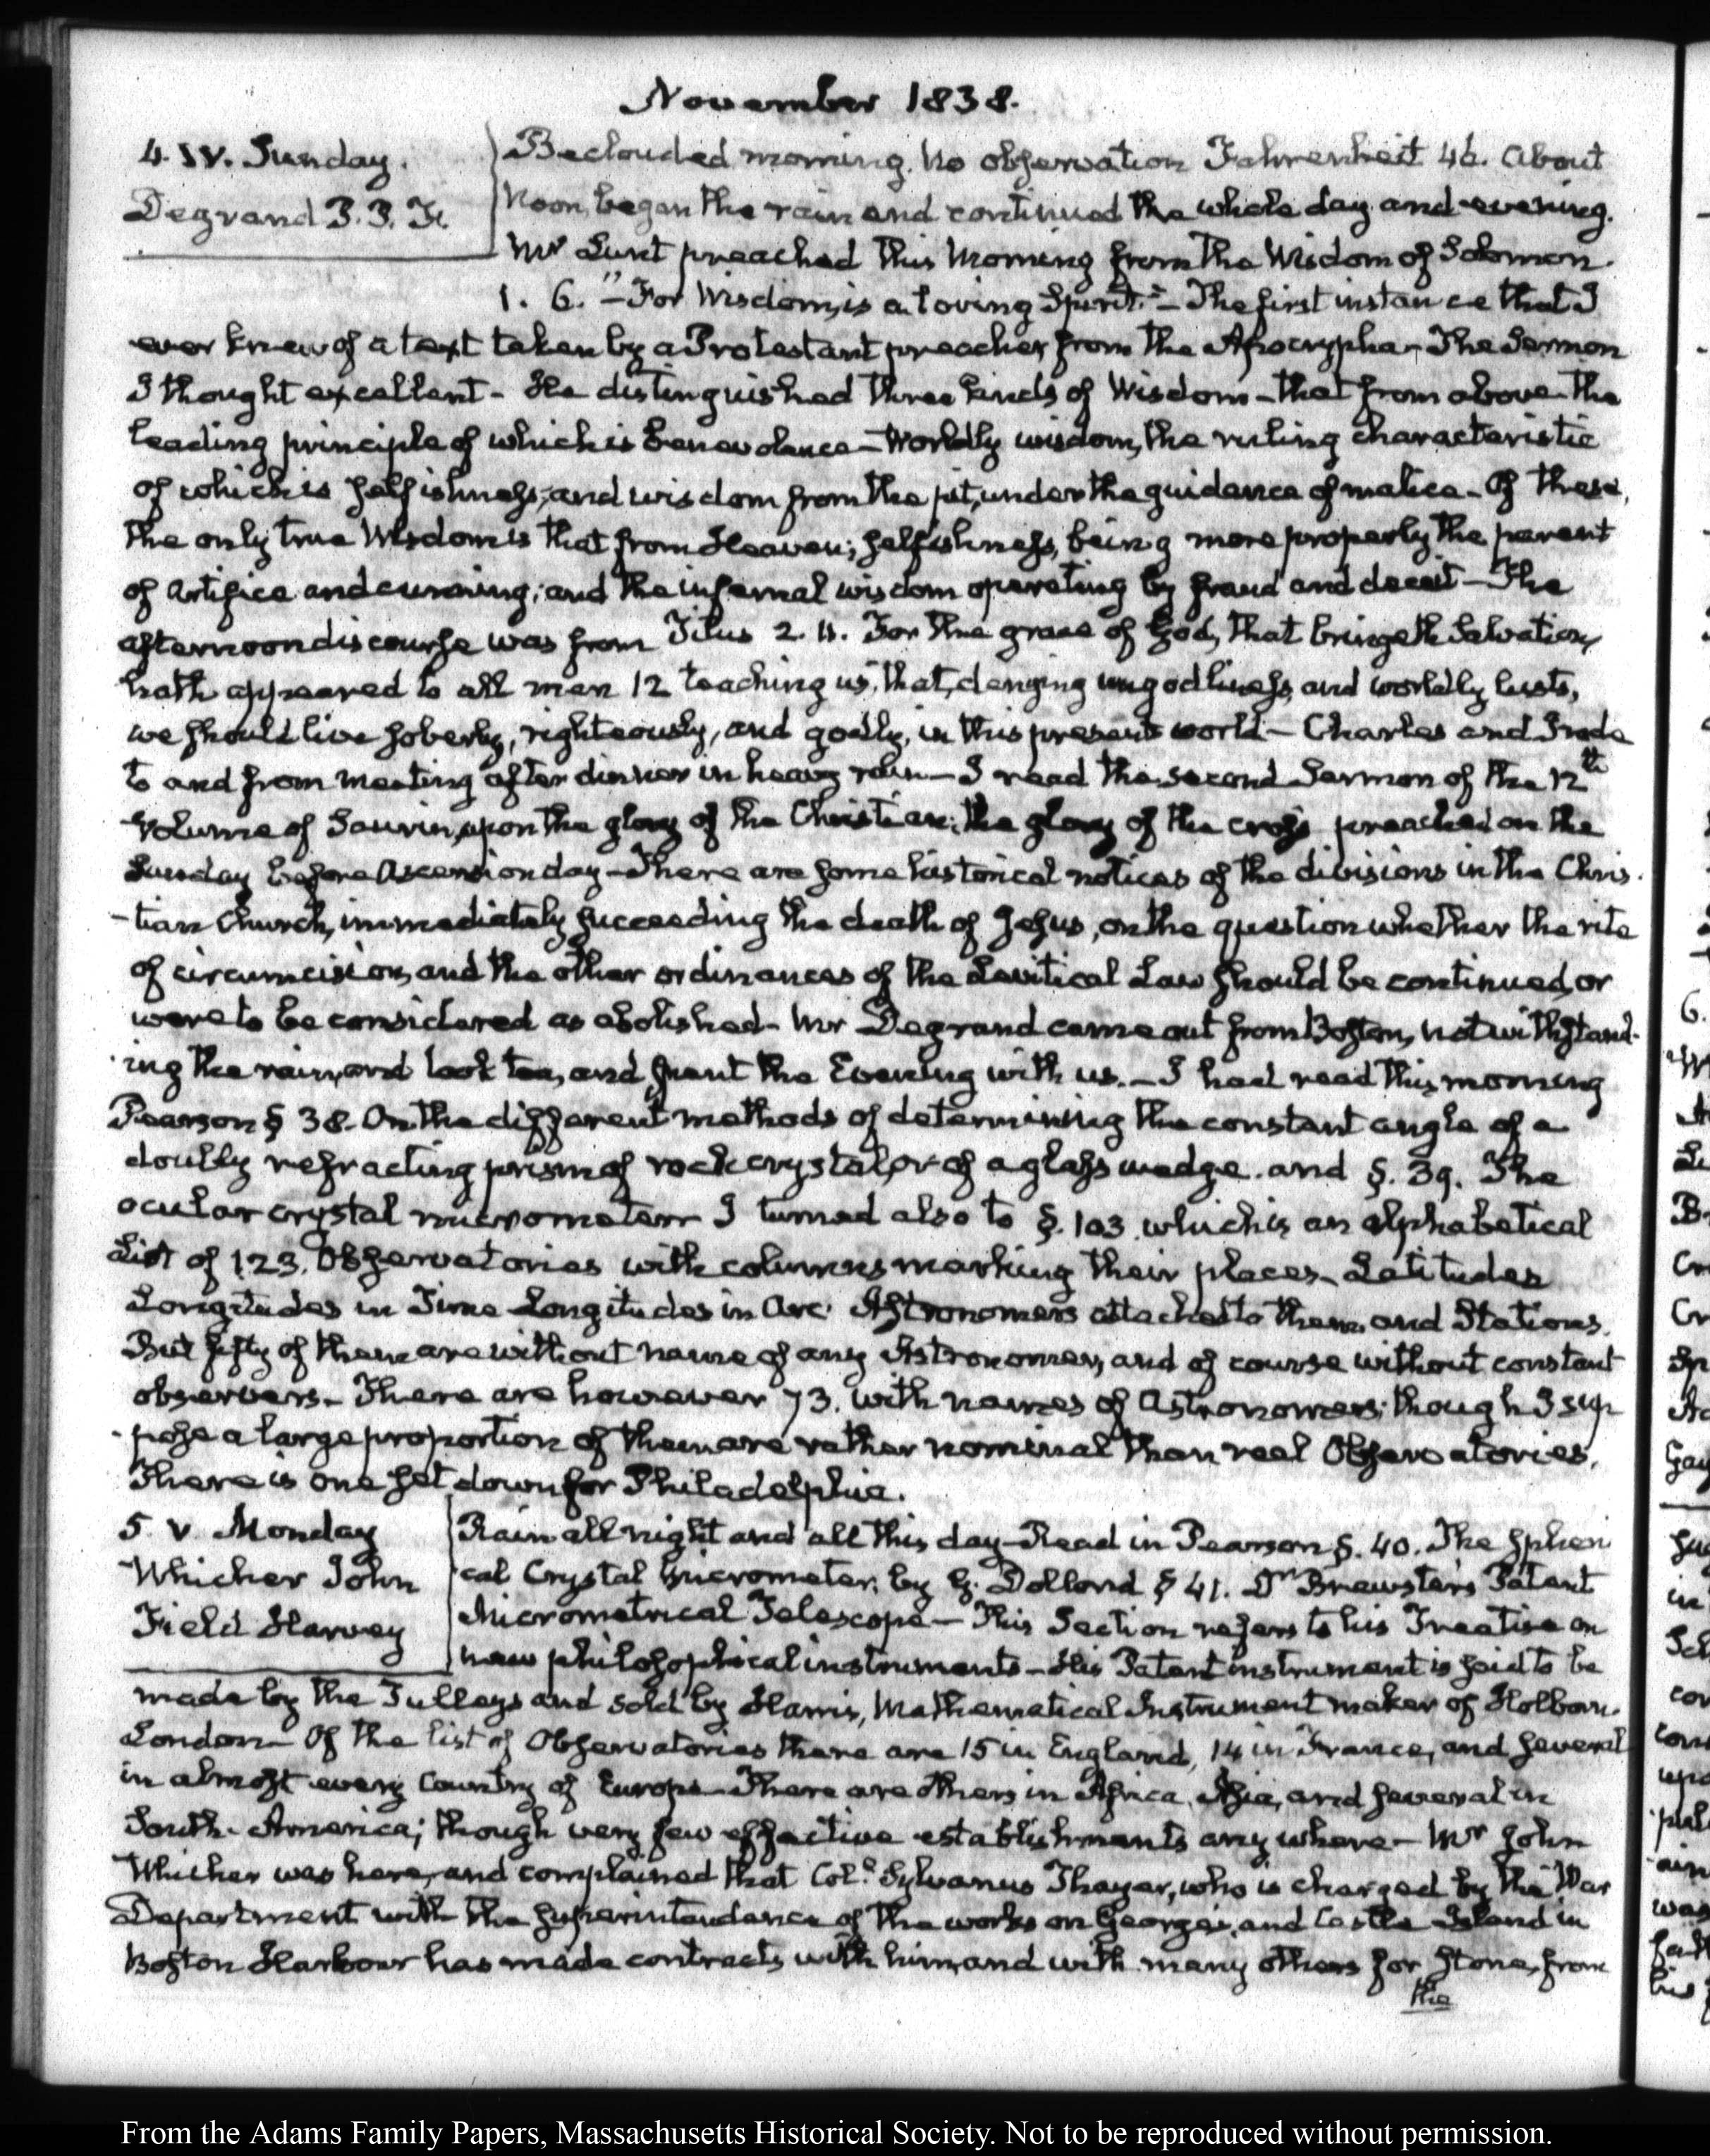 November 1838.
4. IV. Sunday.
Degrand P. P. F.
Beclouded morning. No observation Fahrenheit 46. About
Noon, began the rain and continued the whole day and evening.
Mr Lunt preached this Morning from the Wisdom of Solomon.
1. 6. "For Wisdom, is a loving Spirit." – The first instance that I
ever knew of a text taken by a Protestant preacher from the Apocrypha – The Sermon
I thought excellent – He distinguished three kinds of Wisdom – that from above – the
leading principle of which is Benevolence – Worldly wisdom, the ruling characteristic
of which is selfishness; and wisdom from the pit, under the guidance of malice – Of these,
the only true Wisdom is that from Heaven; selfishness, being more properly the parent
of artifice and cunning; and the infernal wisdom operating by fraud and deceit – The
afternoon discourse was from Titus 2. 11. For the grace of God, that bringeth Salvation,
hath appeared to all men 12 teaching us, that, denying ungodliness, and worldly lusts,
we should live soberly, righteously, and godly, in this present world – Charles and I rode
to and from meeting after dinner in heavy rain – I read the second Sermon of the 12th
Volume of Saurin, upon the glory of the Christian; the glory of the cross preached on the
Sunday before Ascension day – There are some historical notices of the divisions in the Chris-
-tian Church, immediately succeeding the death of Jesus, on the question whether the rite
of circumcision, and the other ordinances of the Levitical Law should be continued, or
were to be considered as abolished – Mr Degrand came out from Boston, notwithstand-
ing the rain, and took tea, and spent the Evening with us. – I had read this morning
Pearson § 38. On the different methods of determining the constant angle of a
doubly refracting prism of rock crystal, or of a glass wedge. and §. 39. The
ocular crystal micrometer – I turned also to §. 103. which is an alphabetical
List of 123. Observatories with columns marking their places – Latitudes
Longitudes in Time Longitudes in Arc. Astronomers attached to them, and Stations.
But fifty of them are without name of any Astronomer, and of course without constant
observers – There are however 73. with names of Astronomers; though I sup
-pose a large proportion of them are rather nominal than real Observatories.
There is one set down for Philadelphia.
5. V. Monday
Whicher John
Field Harvey
Rain all night and all this day – Read in Pearson §. 40. The spheri
cal Crystal Micrometer, by G. Dollond § 41. Dr Brewster's Patent
Micrometrical Telescope – This Section refers to his Treatise on
new philosophical instruments – His Patent instrument is said to be
made by the Tulleys and sold by Harris, Mathematical Instrument maker of Holborn.
London – Of the list of Observatories there are 15 in England, 14 in France, and several
in almost every Country of Europe – There are others in Africa, Asia, and several in
South – America; though very few effective establishments any where – Mr John
Whicher was here, and complained that Coll. Sylvanus Thayer, who is charged by the War
Department with the superintendence of the works on George's, and Castle Island in
Boston Harbour has made contracts with him, and with many others for stone, from
the
From the Adams Family Papers, Massachusetts Historical Society. Not to be reproduced without permission.